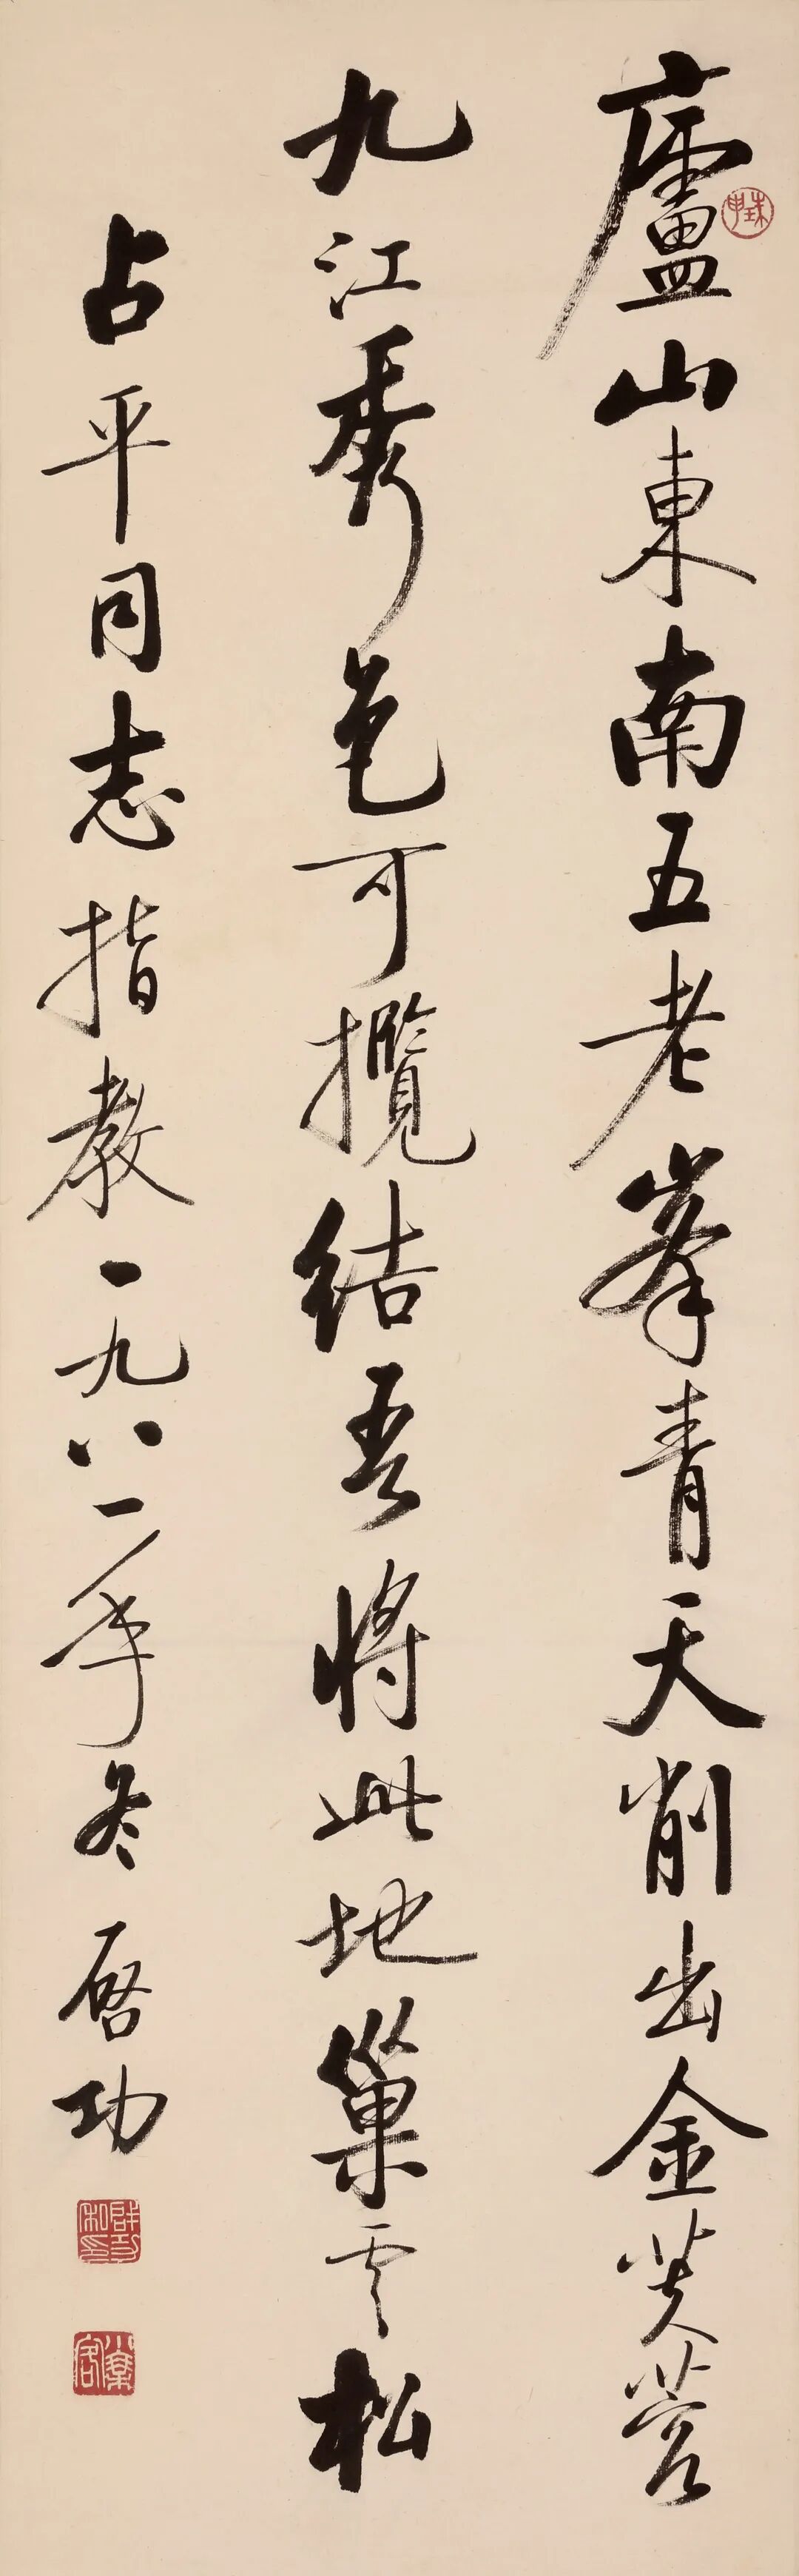 廬山東南五老峯青天削出金芙蓉
九江秀色可攬結吾將此地巢雲松
占平同志指教一九八一年冬啓功